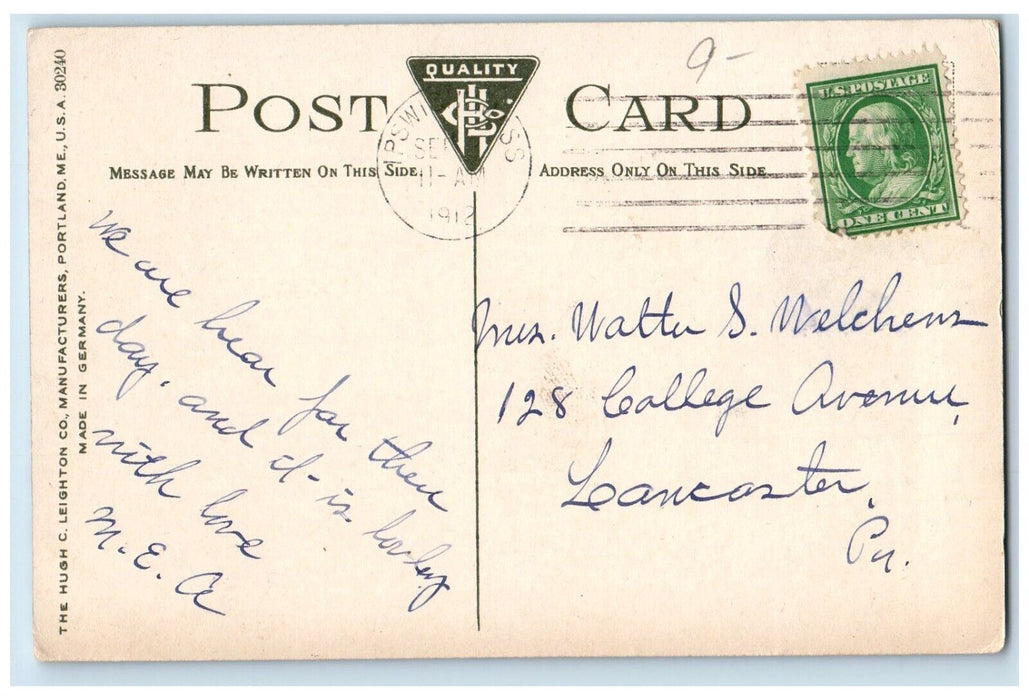 THE HUGH C. LEIGHTON CO., MANUFACTURERS, PORTLAND, ME., U.S.A. 30240
MADE IN GERMANY.
POST CARD
QUALITY
MESSAGE MAY BE WRITTEN ON THIS SIDE.
ADDRESS ONLY ON THIS SIDE.
IPSWI SS
SE
11-AM
1912
9-
U.S. POSTAGE
ONE CENT
We are hear for then
day, and it is lovley
with love
M. E. A
Mrs. Walter S. Welchens
128 College Avenue,
Lancaster,
Pa.